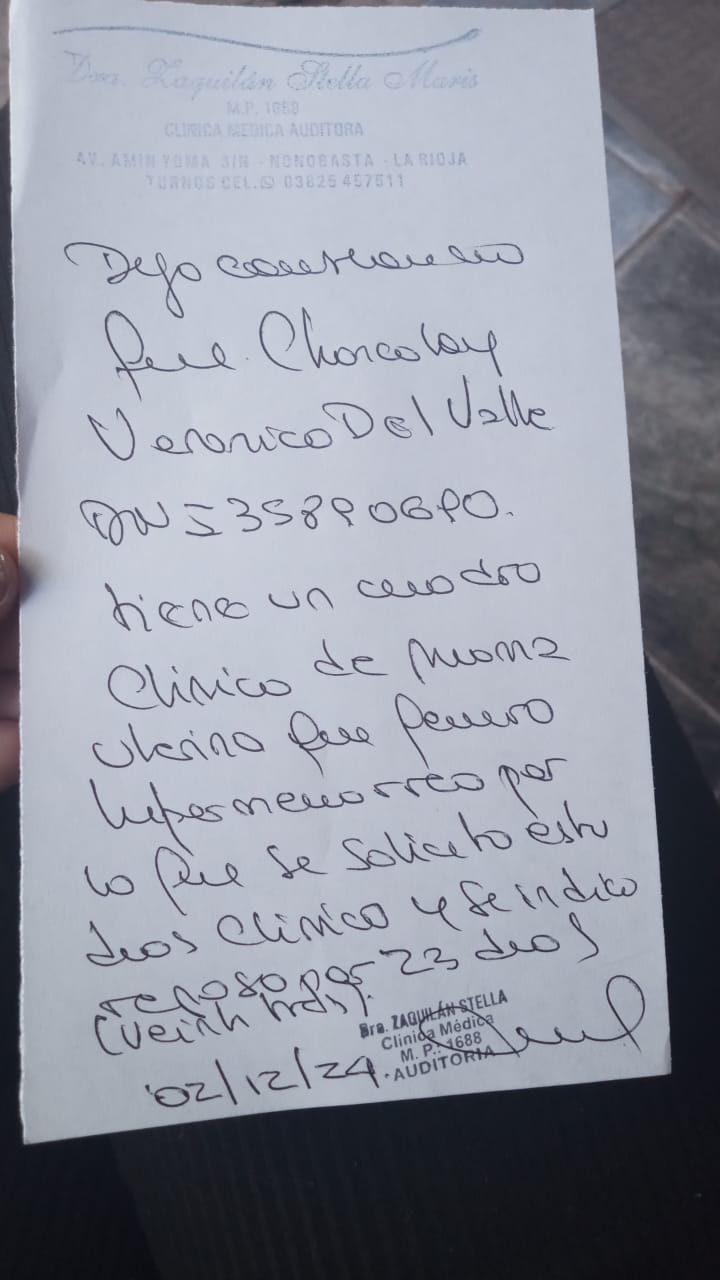 Dra. Zaquilán Stella Maris
M.P. 1688
CLINICA MEDICA AUDITORA
AV. AMIN YOMA S/N - NONOGASTA - LA RIOJA
TURNOS CEL. 03825 457511
Dejo constancia
que Charcolay
Veronica Del Valle
DNI 35890690.
tiene un cuadro
Clinico de mioma
uterino que genero
hipermenorrea por
lo que se solicito estu
dios Clinico y se indico
reposo por 23 dias
(veinti tres).
02/12/24
Dra. ZAQUILÁN STELLA
Clinica Médica
M. P.: 1688
AUDITORIA